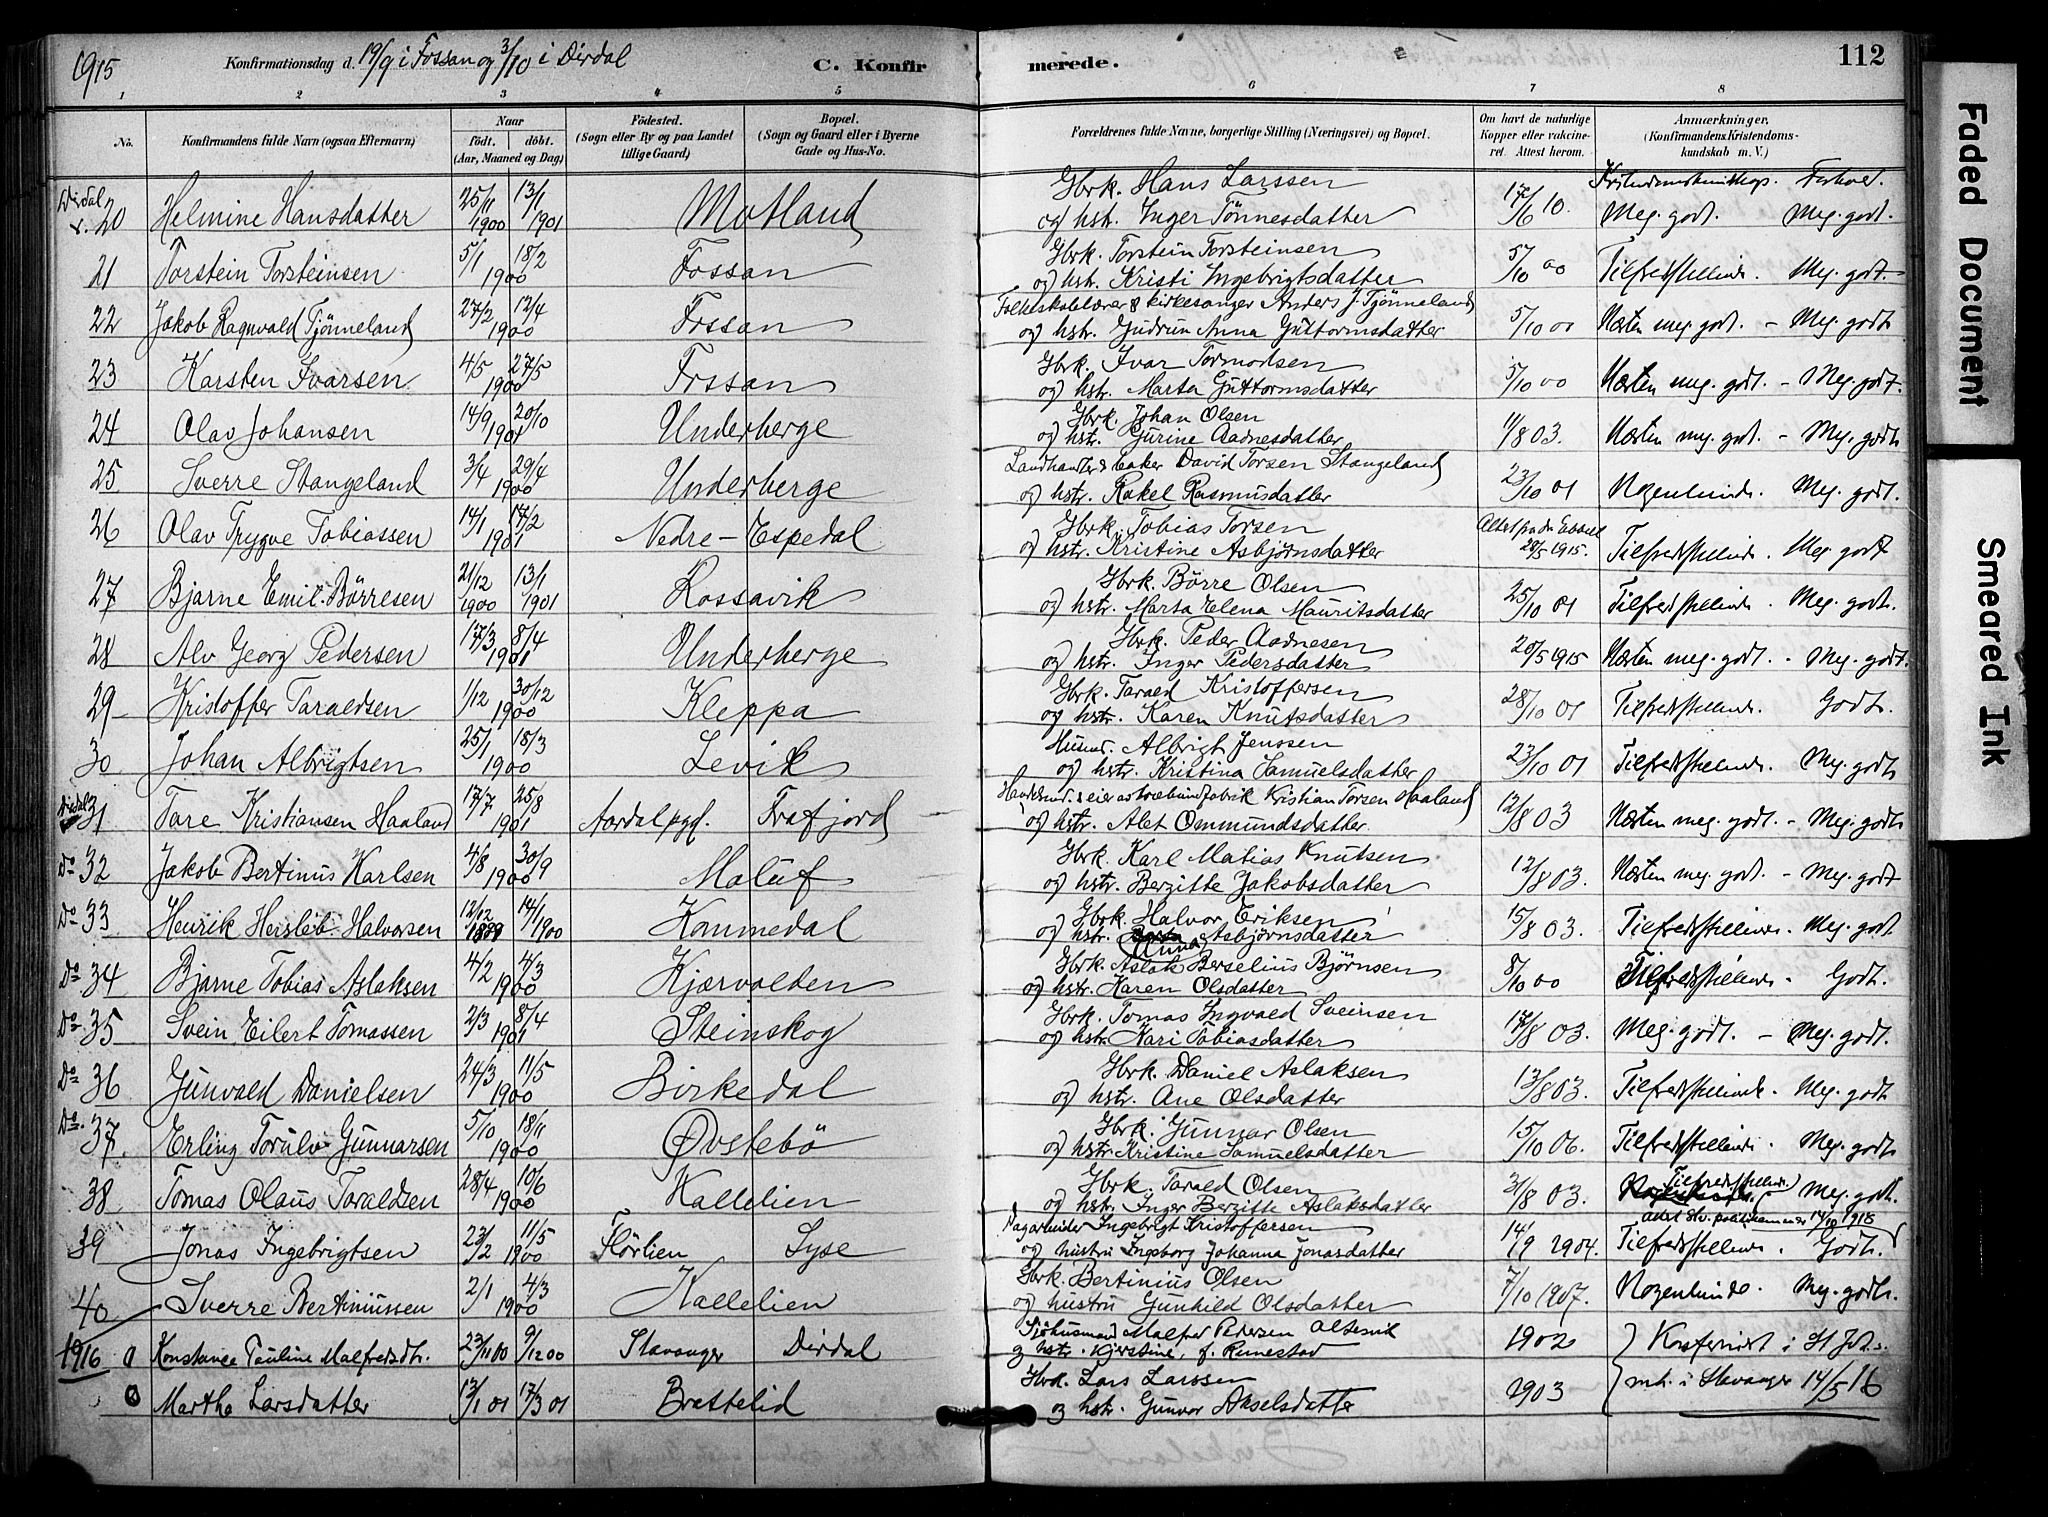 1915
Konfirmationsdag d. 19/9 i Fossan og 3/10 i Dirdal
C. Konfir
merede.
112
1 2 3 4 5 6 7 8
No.
Konfirmandens fulde Navn (ogsaa Efternavn)
Naar
født. døbt.
(Aar, Maaned og Dag)
Fødested.
(Sogn eller By og paa Landet
tillige Gaard)
Bopæl.
(Sogn og Gaard eller i Byerne
Gade og Hus-No.
Forældrenes fulde Navne, borgerlige Stilling (Næringsvei) og Bopæl.
Om havt de naturlige
Kopper eller vakcine-
ret. Attest herom.
Anmærkninger,
(Konfirmandens Kristendoms-
kundskab m. V.)
Faded Document
Smeared Ink
Dirdal 20 Helmine Hansdatter 25/11 1900 13/1 1901 Motland Gbrk. Hans Larssen 17/6 10. Kristendomskundskap. Forhold.
og hstr. Inger Tønnesdatter Meg. godt. Meg. godt.
21 Torstein Torsteinsen 5/1 18/2 1900 Fossan Gbrk. Torstein Torsteinsen 5/10 00
og hstr. Kristi Ingebrigtsdatter Tilfredsstillende. Meg. godt.
22 Jakob Ragnvald Tjønneland 27/2 12/4 1900 Fossan Folkeskolelærer & kirkesanger Anders J. Tjønneland
og hstr. Gudrun Anna Guttormsdatter 5/10 00 Næsten meg. godt. - Meg. godt.
23 Karsten Ivarsen 4/5 27/5 1900 Fossan Gbrk. Ivar Tormodsen
og hstr. Marta Guttormsdatter 5/10 00 Næsten meg. godt. - Meg. godt.
24 Olav Johansen 14/9 20/10 1901 Underberge Gbrk. Johan Olsen
og hstr. Gurine Aadnesdatter 11/8 03. Næsten meg. godt. - Meg. godt.
25 Sverre Stangeland 3/4 29/4 1900 Underberge Landhandler & baker David Torsen Stangeland
og hstr. Rakel Rasmusdatter 23/10 01 Nogenlunde. Meg. godt.
26 Olav Trygve Tobiassen 14/1 17/2 1901 Nedre-Espedal Gbrk. Tobias Torsen
og hstr. Kristine Asbjørnsdatter 29/5 1915. Tilfredsstillende. Meg. godt
27 Bjarne Emil Børresen 21/12 1900 13/1 1901 Rossavik Gbrk. Børre Olsen
og hstr. Marta Elena Mauritsdatter 25/10 01 Tilfredsstillende. Meg. godt.
28 Alv Georg Pedersen 17/3 8/4 1901 Underberge Gbrk. Peder Aadnesen
og hstr. Inger Pedersdatter 20/5 1915 Næsten meg. godt. - Meg. godt.
29 Kristoffer Taraldsen 1/12 30/12 1900 Kleppa Gbrk. Tarald Kristoffersen
og hstr. Karen Knutsdatter 28/10 01 Tilfredsstillende. Godt.
30 Johan Albrigtsen 25/1 18/3 1900 Levik Husmd. Albrigt Jenssen
og hstr. Kristina Samuelsdatter 23/10 01 Tilfredsstillende. Meg. godt
Dirdal 31 Tore Kristiansen Haaland 17/7 25/8 1901 Aardal pgd. Frafjord Kristian Torsen Haaland
og hstr. Alet Ommundsdatter 12/8 03 Næsten meg. godt. - Meg. godt
Do 32 Jakob Bertinus Karlsen 4/8 30/9 1900 Maluf Gbrk. Karl Matias Knutsen
og hstr. Bergitte Jakobsdatter 12/8 03. Næsten meg. godt. - Meg. godt
Do 33 Henrik Hersleb Halvorsen 12/12 1899 14/1 1900 Kommedal Gbrk. Halvor Eriksen
og hstr. Anna Asbjørnsdatter 15/8 03. Tilfredsstillende. Meg. godt
Do 34 Bjarne Tobias Aslaksen 4/2 4/3 1900 Kjærvolden Gbrk. Aslak Berselius Bjørnsen
og hstr. Karen Olsdatter 8/10 00 Tilfredsstillende. Godt.
Do 35 Svein Eilert Tomassen 2/3 8/4 1901 Steinskog Gbrk. Tomas Ingvald Sveinsen
og hstr. Kari Tobiasdatter 17/8 03. Meg. godt. - Meg. godt.
Do 36 Gunvald Danielsen 24/3 11/5 1900 Birkedal Gbrk. Daniel Aslaksen
og hstr. Ane Olsdatter 13/8 03. Tilfredsstillende. Meg. godt
Do. 37 Erling Torulv Gunnarsen 5/10 18/11 1900 Øvstebø Gbrk. Gunnar Olsen
og hstr. Kristine Samuelsdatter 15/10 06. Tilfredsstillende. Meg. godt
38 Tomas Olaus Taraldsen 28/4 10/6 1900 Kallelien Gbrk. Tarald Olsen
og hstr. Inger Bergitte Aslaksdatter 21/8 03. Tilfredsstillende Meg. godt.
14/10 1918
39 Jonas Ingebrigtsen 23/2 11/5 1900 Flørlien Lyse Dagarbeider Ingebrigt Kristoffersen
og hustru Ingeborg Johanna Jonasdatter 14/9 1904. Tilfredsstillende. Godt.
40 Sverre Bertiniussen 2/1 4/3 1900 Kallelien Gbrk. Bertinius Olsen
og hustru Gunhild Olsdatter 7/10 1907. Nogenlunde. Meg. godt.
1916 0 Konstance Pauline Malfredsdtr. 23/11 00 9/12 00 Stavanger Dirdal Malfred Pedersen Oltesvik
og hstr. Kjerstine, f. Runestad 1902 Konfirmert i St. Joh.
0 Martha Larsdatter 13/1 01 17/3 01 Brattelid Gbrk. Lars Larssen
og hstr. Gunvor Akselsdatter 1903 mh. i Stavanger 14/5 16